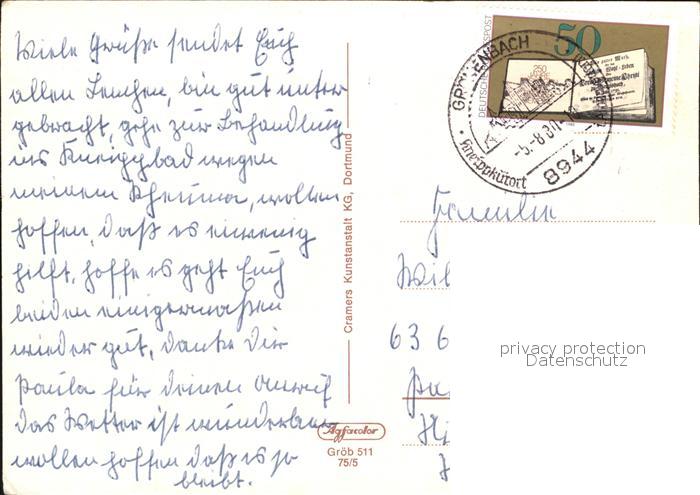 Viele Grüße sendet Euch
allen Lenchen, bin gut unter
gebracht, gehe zur Behandlung
ins Kneippbad wegen
meinem Rheuma, wollen
hoffen, daß es einwenig
hilft, hoffe es geht Euch
beiden einigermaßen
wieder gut, danke Dir
Paula für deinen Anruf
das Wetter ist wunderbar
wollen hoffen daß es so
bleibt.
Cramers Kunstanstalt KG, Dortmund
Agfacolor
Gröb 511
75/5
DEUTSCHE BUNDESPOST
50
250
GRÖNENBACH
-5.-8.80
Kneippkurort
8944
Familie
Wil
63 6
privacy protection
Datenschutz
Hi